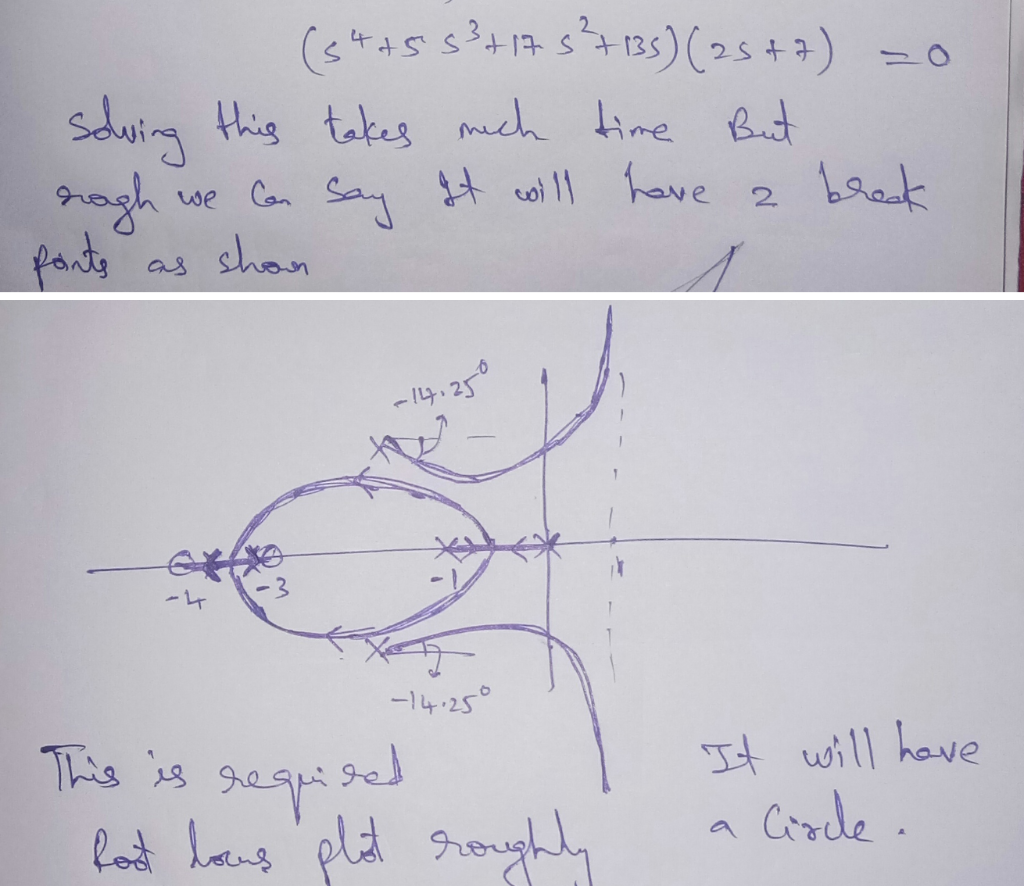 (s⁴+5 s³+17 s²+13s)(2s+7) =0
Solving this takes much time But
rogh we Can Say It will have 2 break
points as shon
-14.25⁰
-4
-3
-1
-14.25⁰
This is required
Root locus plot roughly
It will have
a Circle.